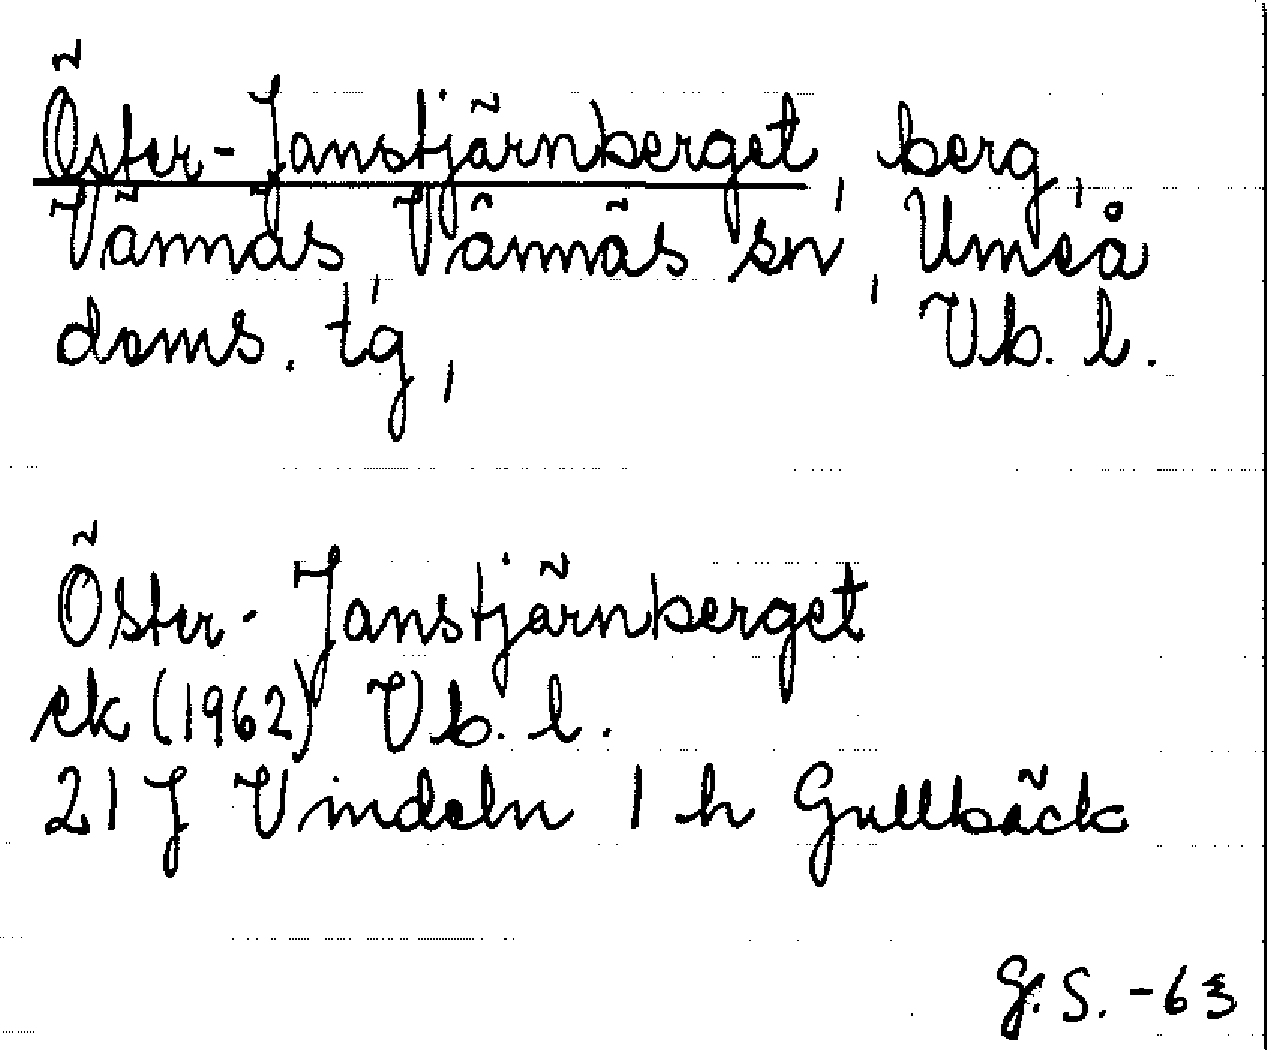 Öster-Janstjärnberget, berg,
Vännäs, Vännäs sn, Umeå
doms. tg, Vb. l.
Öster-Janstjärnberget
ek (1962) Vb. l.
21 J Vindeln 1 h Gullbäck
G. S. -63